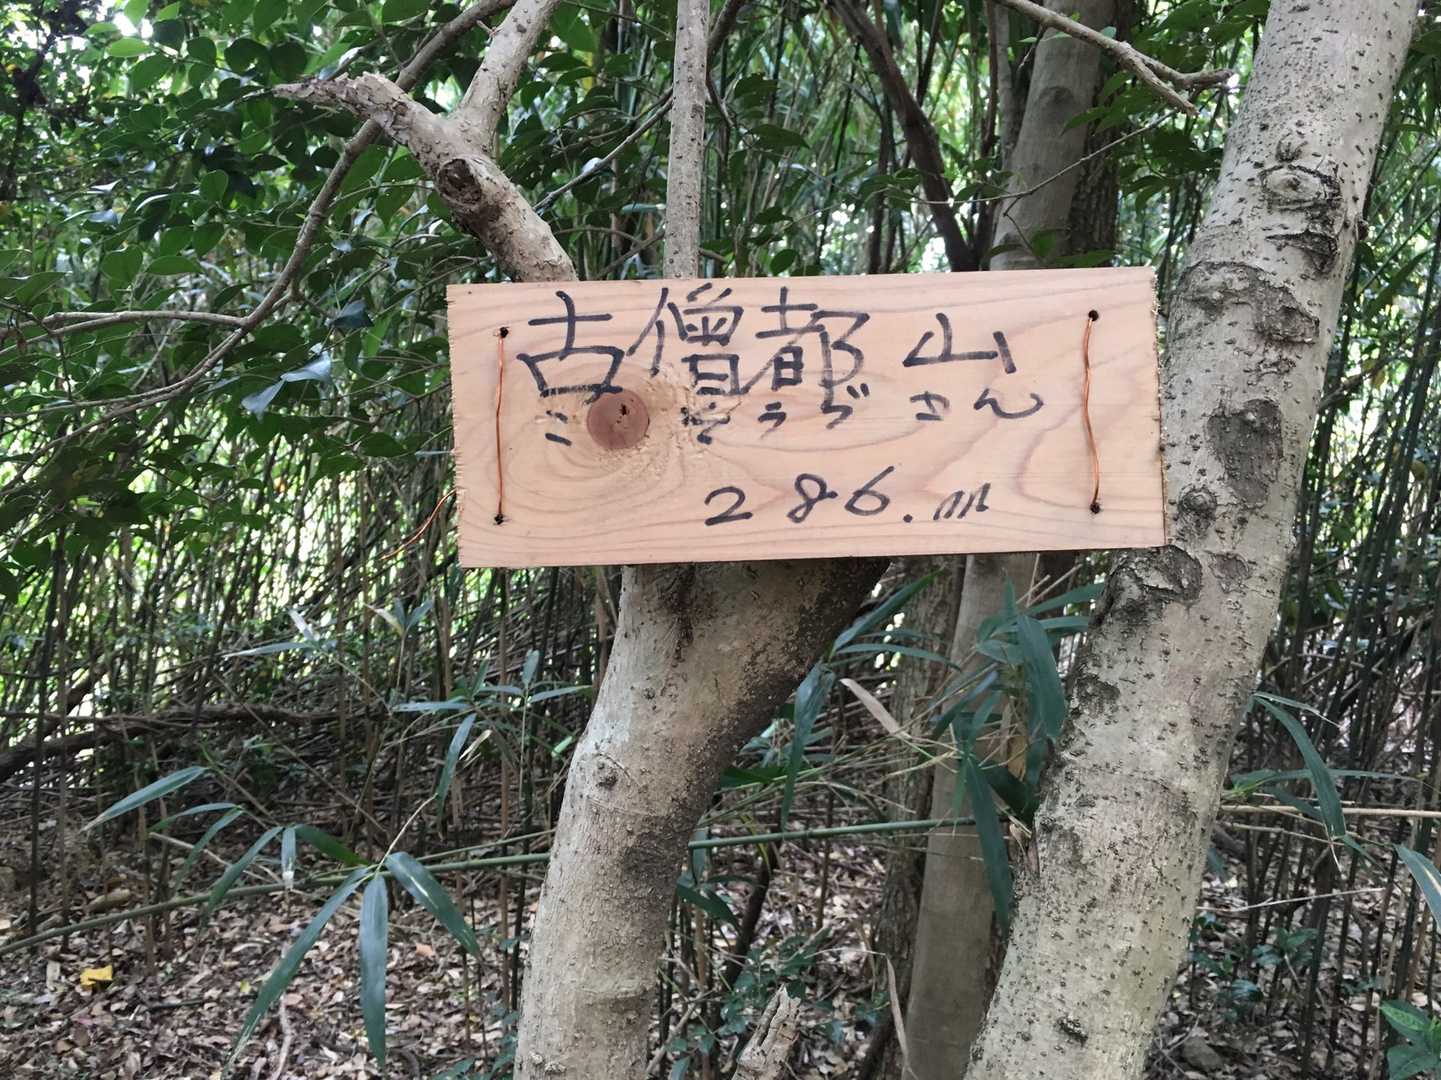 古僧都山
こそうづさん
286.m